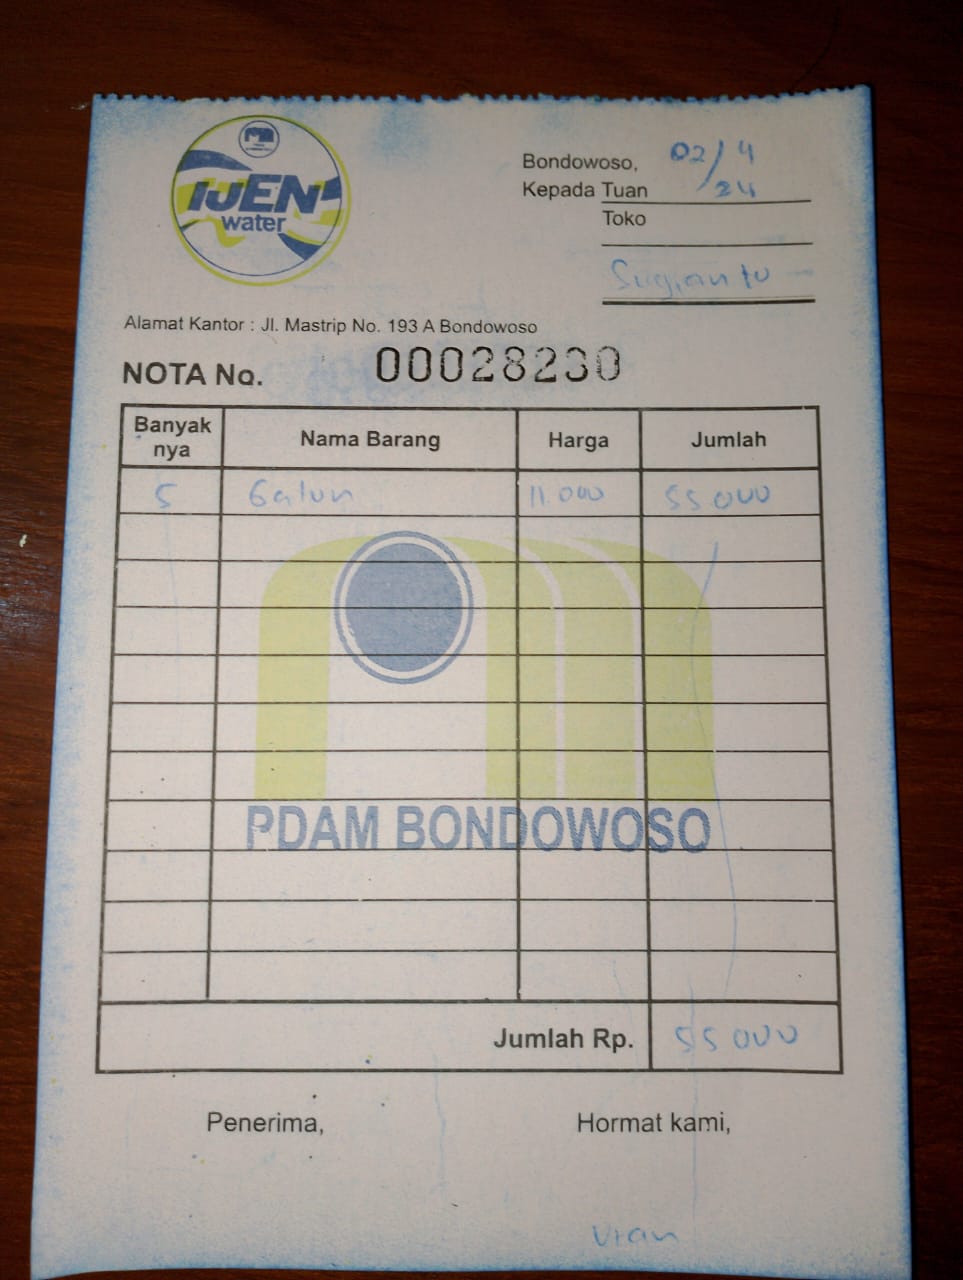 IJEN
water
Bondowoso, 02/4
Kepada Tuan 24
Toko
Sugianto
Alamat Kantor : Jl. Mastrip No. 193 A Bondowoso
NOTA No. 00028230
Banyak nya Nama Barang Harga Jumlah
5 Galun 11.000 55000
PDAM BONDOWOSO
Jumlah Rp. 55000
Penerima, Hormat kami,